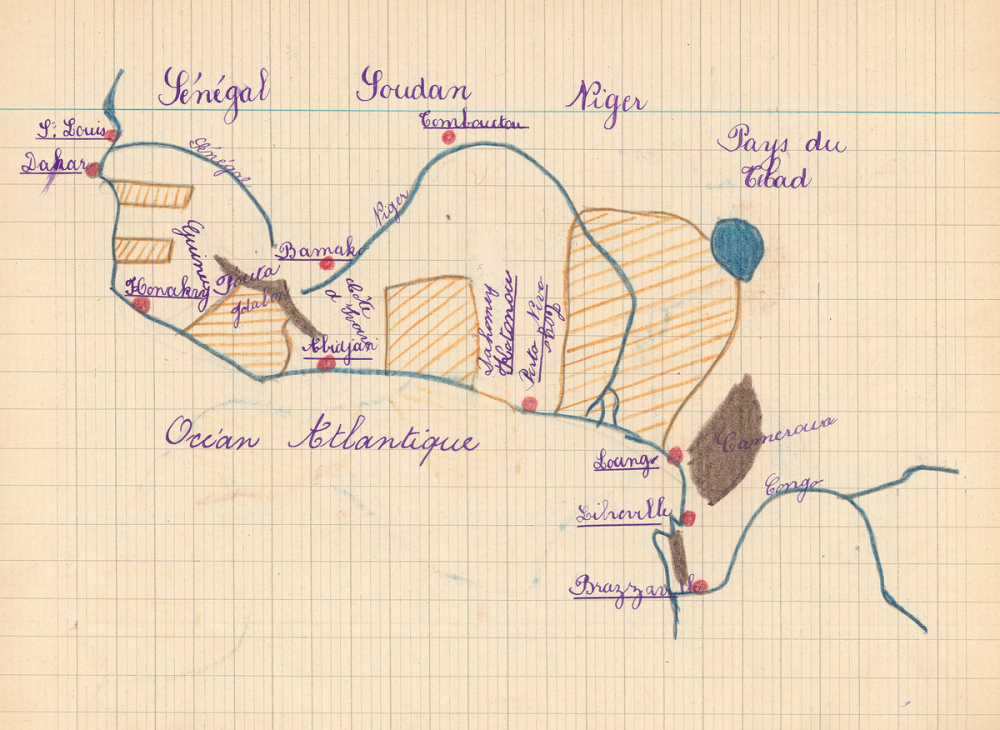 Sénégal
Soudan
Niger
St Louis
Tombouctou
Dakar
Sénégal
Pays du
Tchad
Niger
Guinée
Bamako
Fouta
Djalon
Konakry
Côte
d'Ivoire
Abidjan
Dahomey
Kotonou
Porto Novo
Océan Atlantique
Cameroun
Loango
Congo
Libreville
Brazzaville